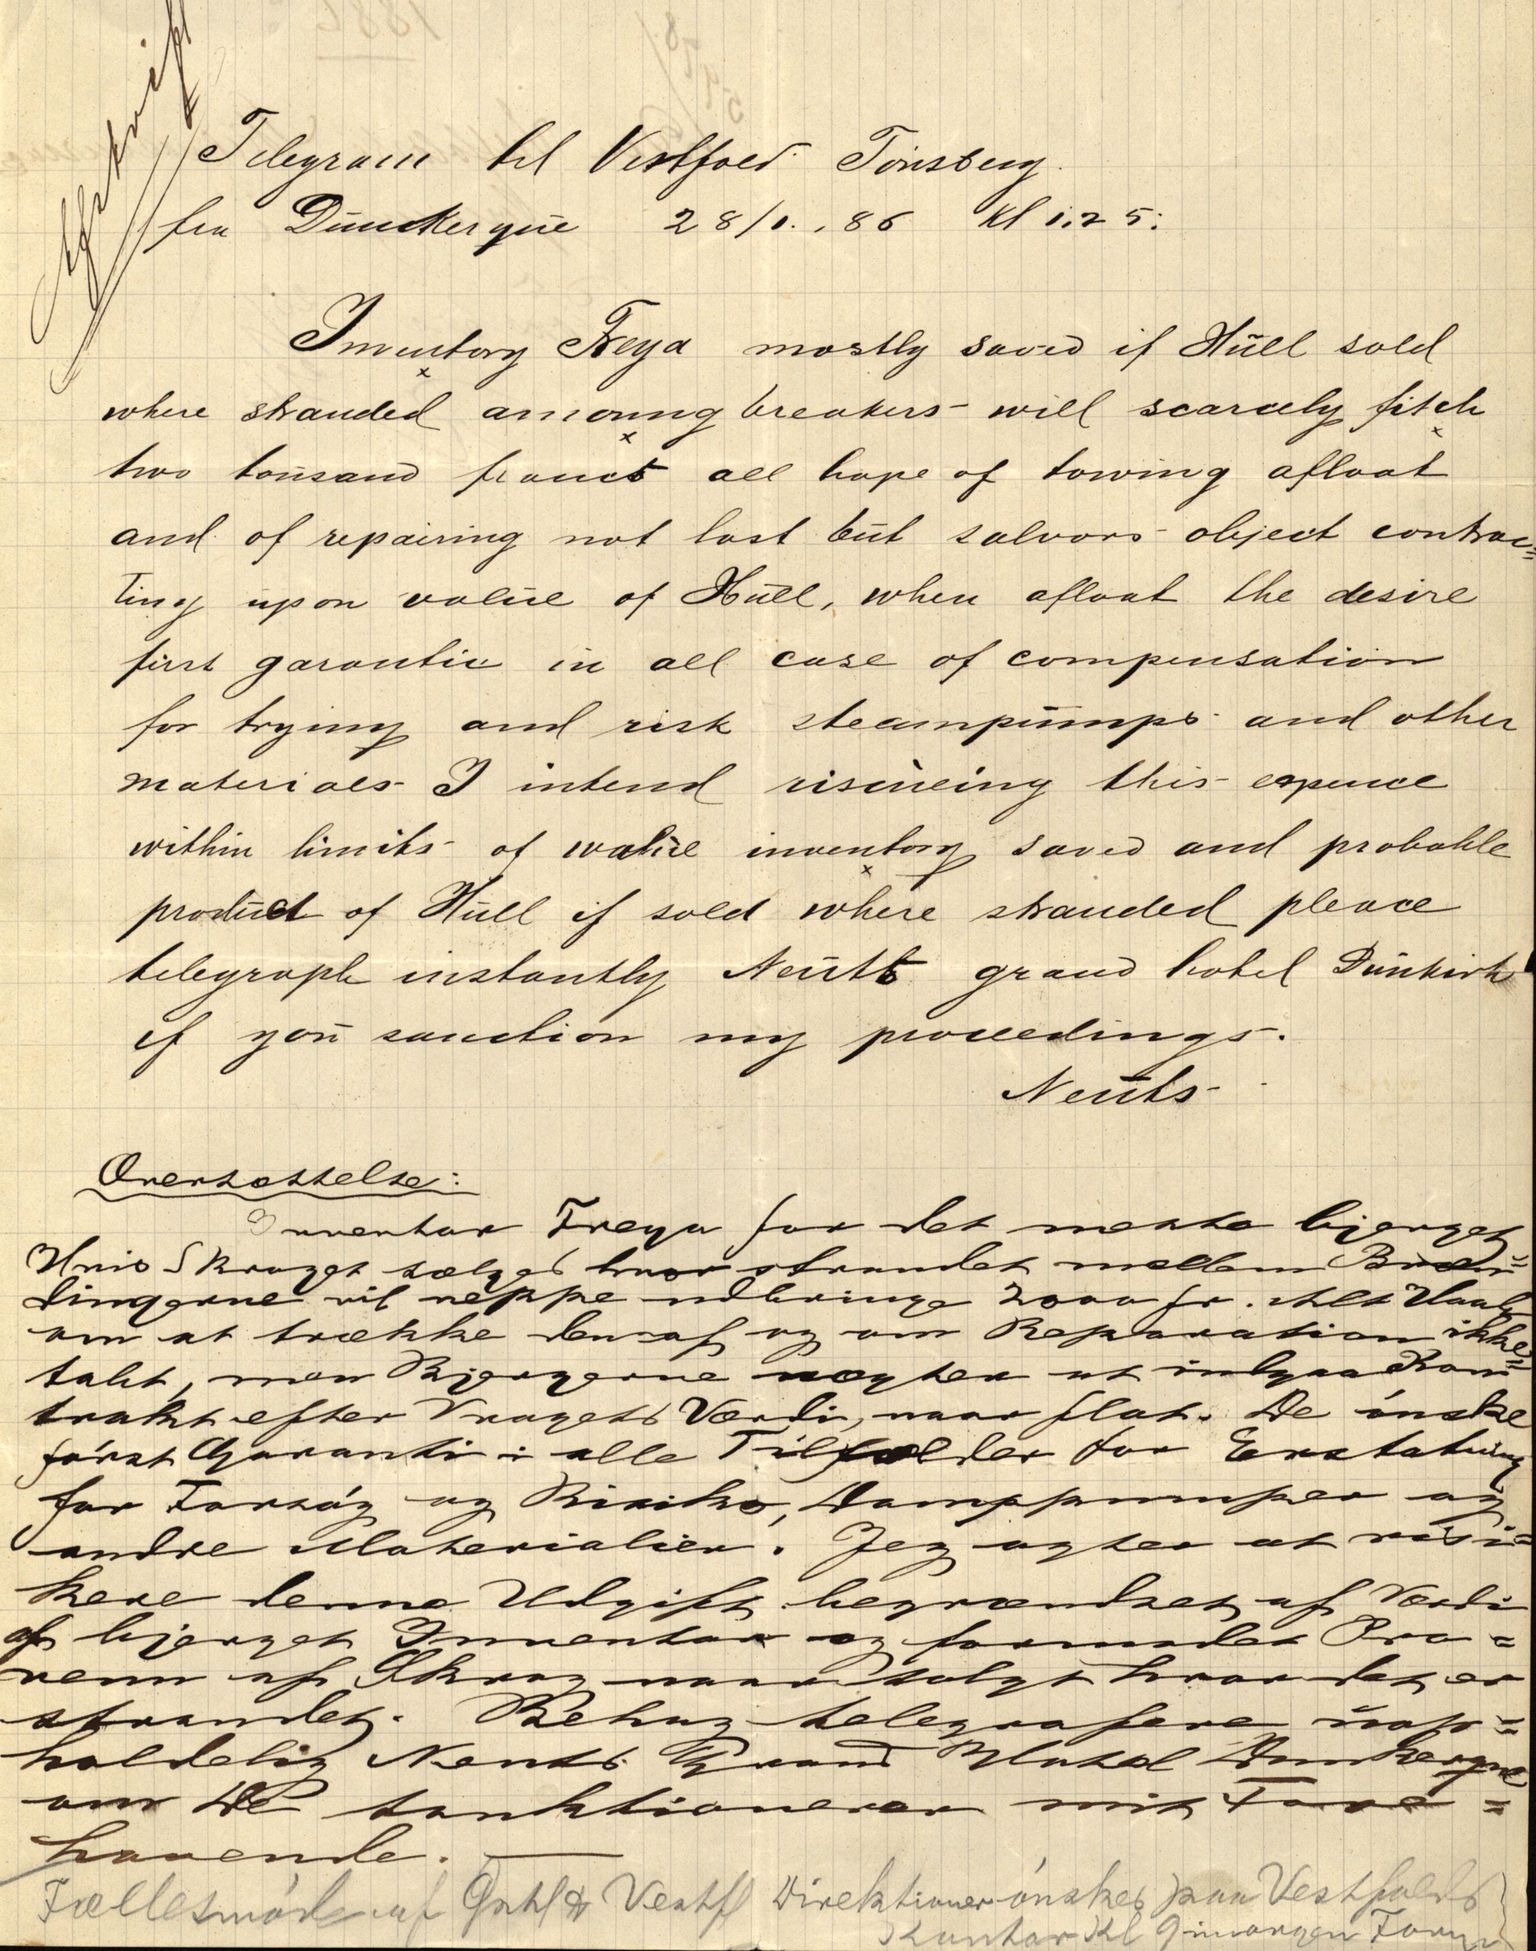 Afskrift
Telegram til Vestfold Tönsberg.
fra Dünckerqüe 28/1. 86 Kl 1.25:
Inventory Freya mostly saved if Hüll sold
where stranded amoung breakers will scarcely fitch
two toüsand francs all hope of towing afloat
and of repairing not lost büt salvors object contrac=
ting upon valüe of Hüll, when afloat the desire
first garantie in all case of compensation
for trying and risk steampümps and other
materials I intend this expence
within limits of valüe inventory saved and probable
prodüct of Hüll if sold where stranded pleace
telegraph instantly Neüts grand hotel Dünkirk
if yoü sanction my proceedings.
Neüts
Oversættelse:
Inventar Freya for det meste bjerget
Hvis Skroget sælges hvor strandet mellem Bræn=
dingerne vil neppe udbringe 2000 fr. Alt Haab
om at trække den af og om Reparation ikke
tabt, men Bjergerne nægter at indgaa Kon=
trakt efter Vragets Værdi, naar flot. De önske
först Garanti i alle Tilfælder for Erstatning
for Forsög og Risiko, Damppumper og
andre Materialier. Jeg agter at risi=
kere denne Udgift begrændset af Værdi
af bjerget Inventar og formodet Pro=
venu af Skrog naar solgt hvor det er
strandet. Behag telegrafere uop=
holdelig Neuts Grand Hotel Dunkerque
om De sanktionerer mit Fore=
havende.
Fællesmöde af Vestf Direktioner önskes paa Vestfolds
Kontor Kl 9 imorgen